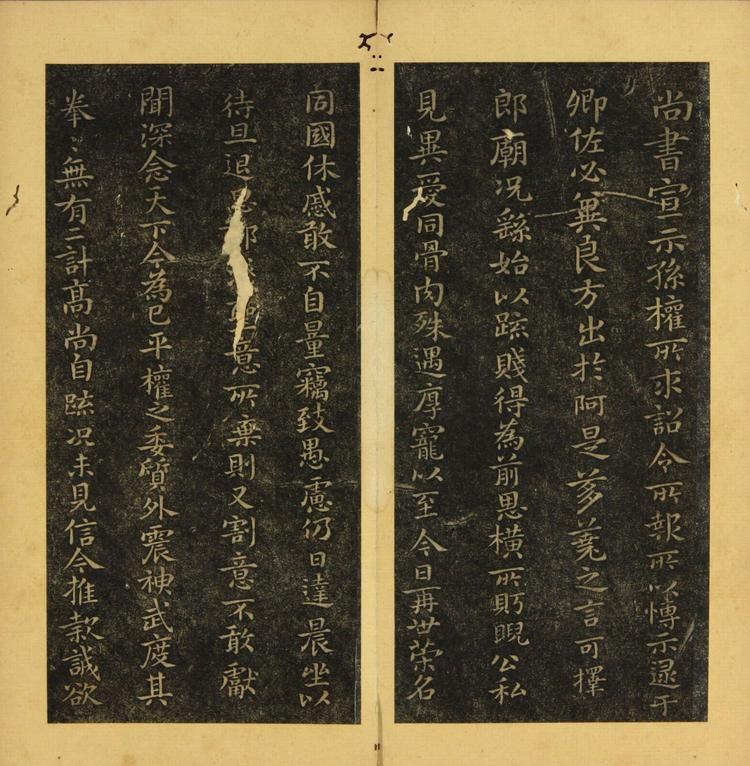 尚書宣示孫權所求詔令所報所以博示逮于
卿佐必冀良方出於阿是芻蕘之言可擇
郎廟況繇始以疏賤得為前恩橫所眄睨公私
見異愛同骨肉殊遇厚寵以至今日再世榮名
同國休慼敢不自量竊致愚慮仍日達晨坐以
待旦退意所棄則又割意不敢獻
聞深念天下今為已平權之委質外震神武度其
拳〻無有二計高尚自疏況未見信今推款誠欲